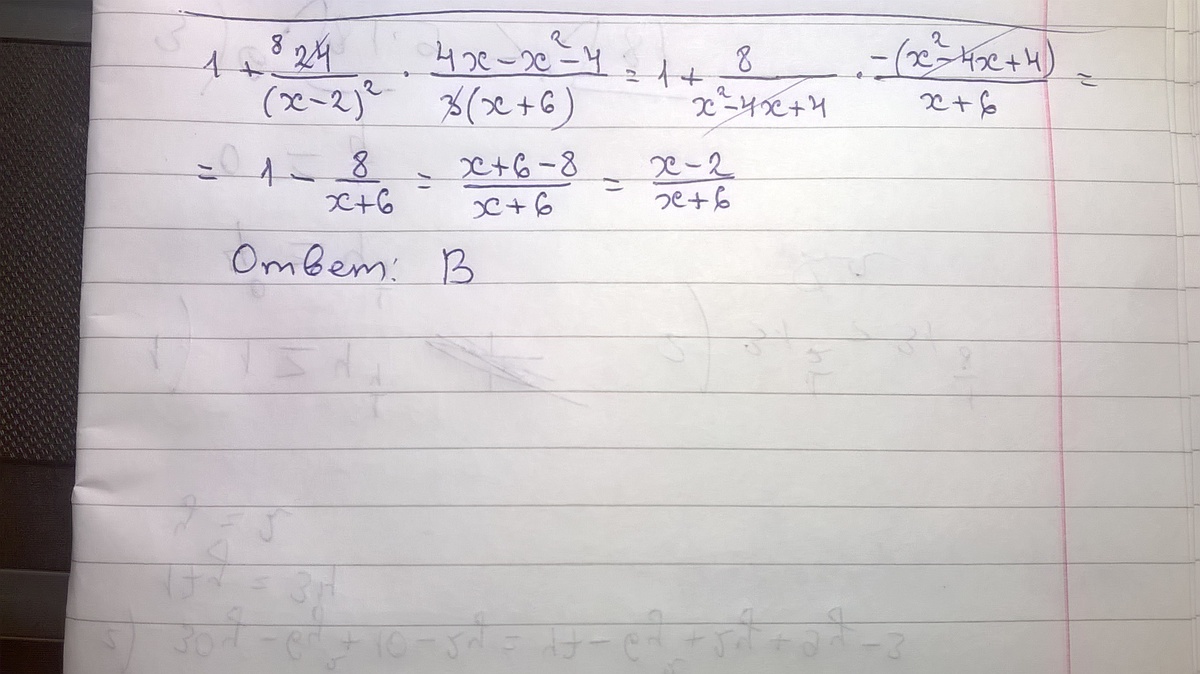 1 + 8 24/(x-2)² · (4x-x²-4)/(3(x+6)) = 1 + 8/(x²-4x+4) · (-(x²-4x+4))/(x+6) =
= 1 - 8/(x+6) = (x+6-8)/(x+6) = (x-2)/(x+6)
Ответ: В